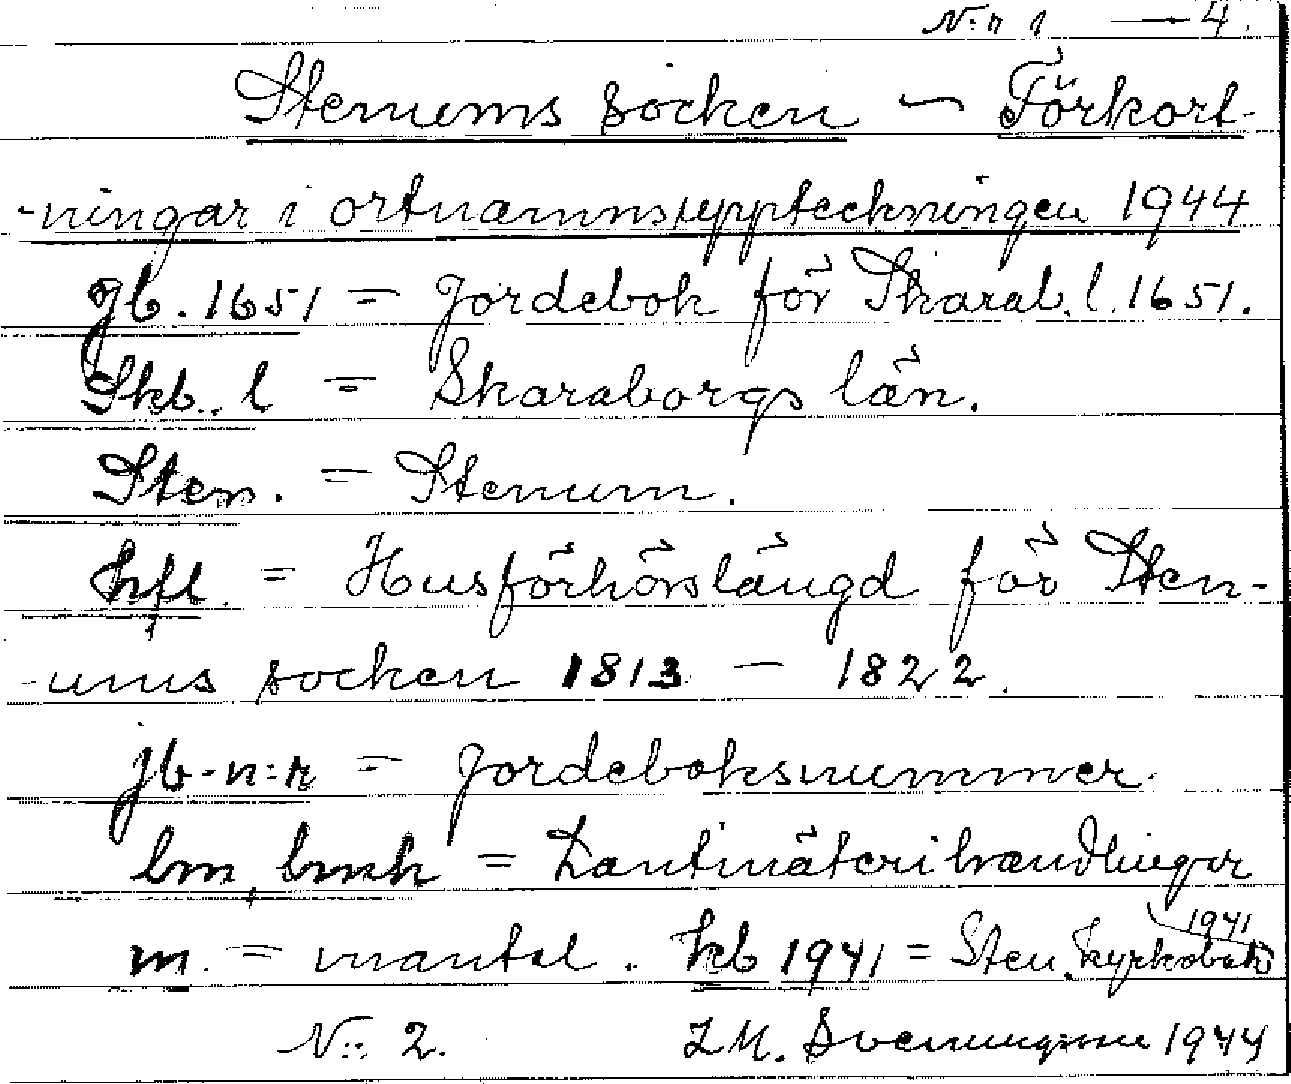 N:r 1 — 4.
Stenums socken — Förkort-
-ningar i ortnamnsuppteckningen 1944
jb. 1651 = Jordebok för Skarab. l. 1651.
Skb. l = Skaraborgs län.
Sten. = Stenum.
hfl = Husförhörslängd för Sten-
-ums socken 1813 — 1822.
jb-n:r = Jordeboksnummer.
lm, lmh = Lantmäterihandlingar
m. = mantal. kb 1941 = Sten. kyrkobok 1941
N:r 2. L.M. Svenungsson 1944